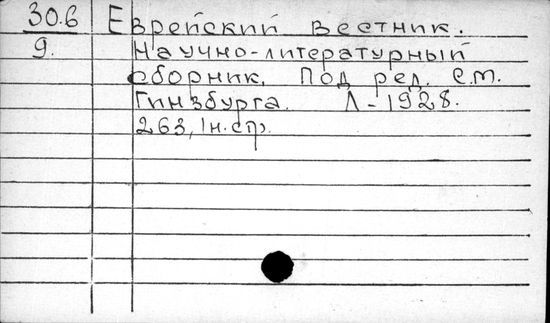 30.6 Еврейский вестник.
9. Научно-литературный
сборник. Под ред. С.М.
Гинзбурга. Л-1928.
263, 1н.ср).